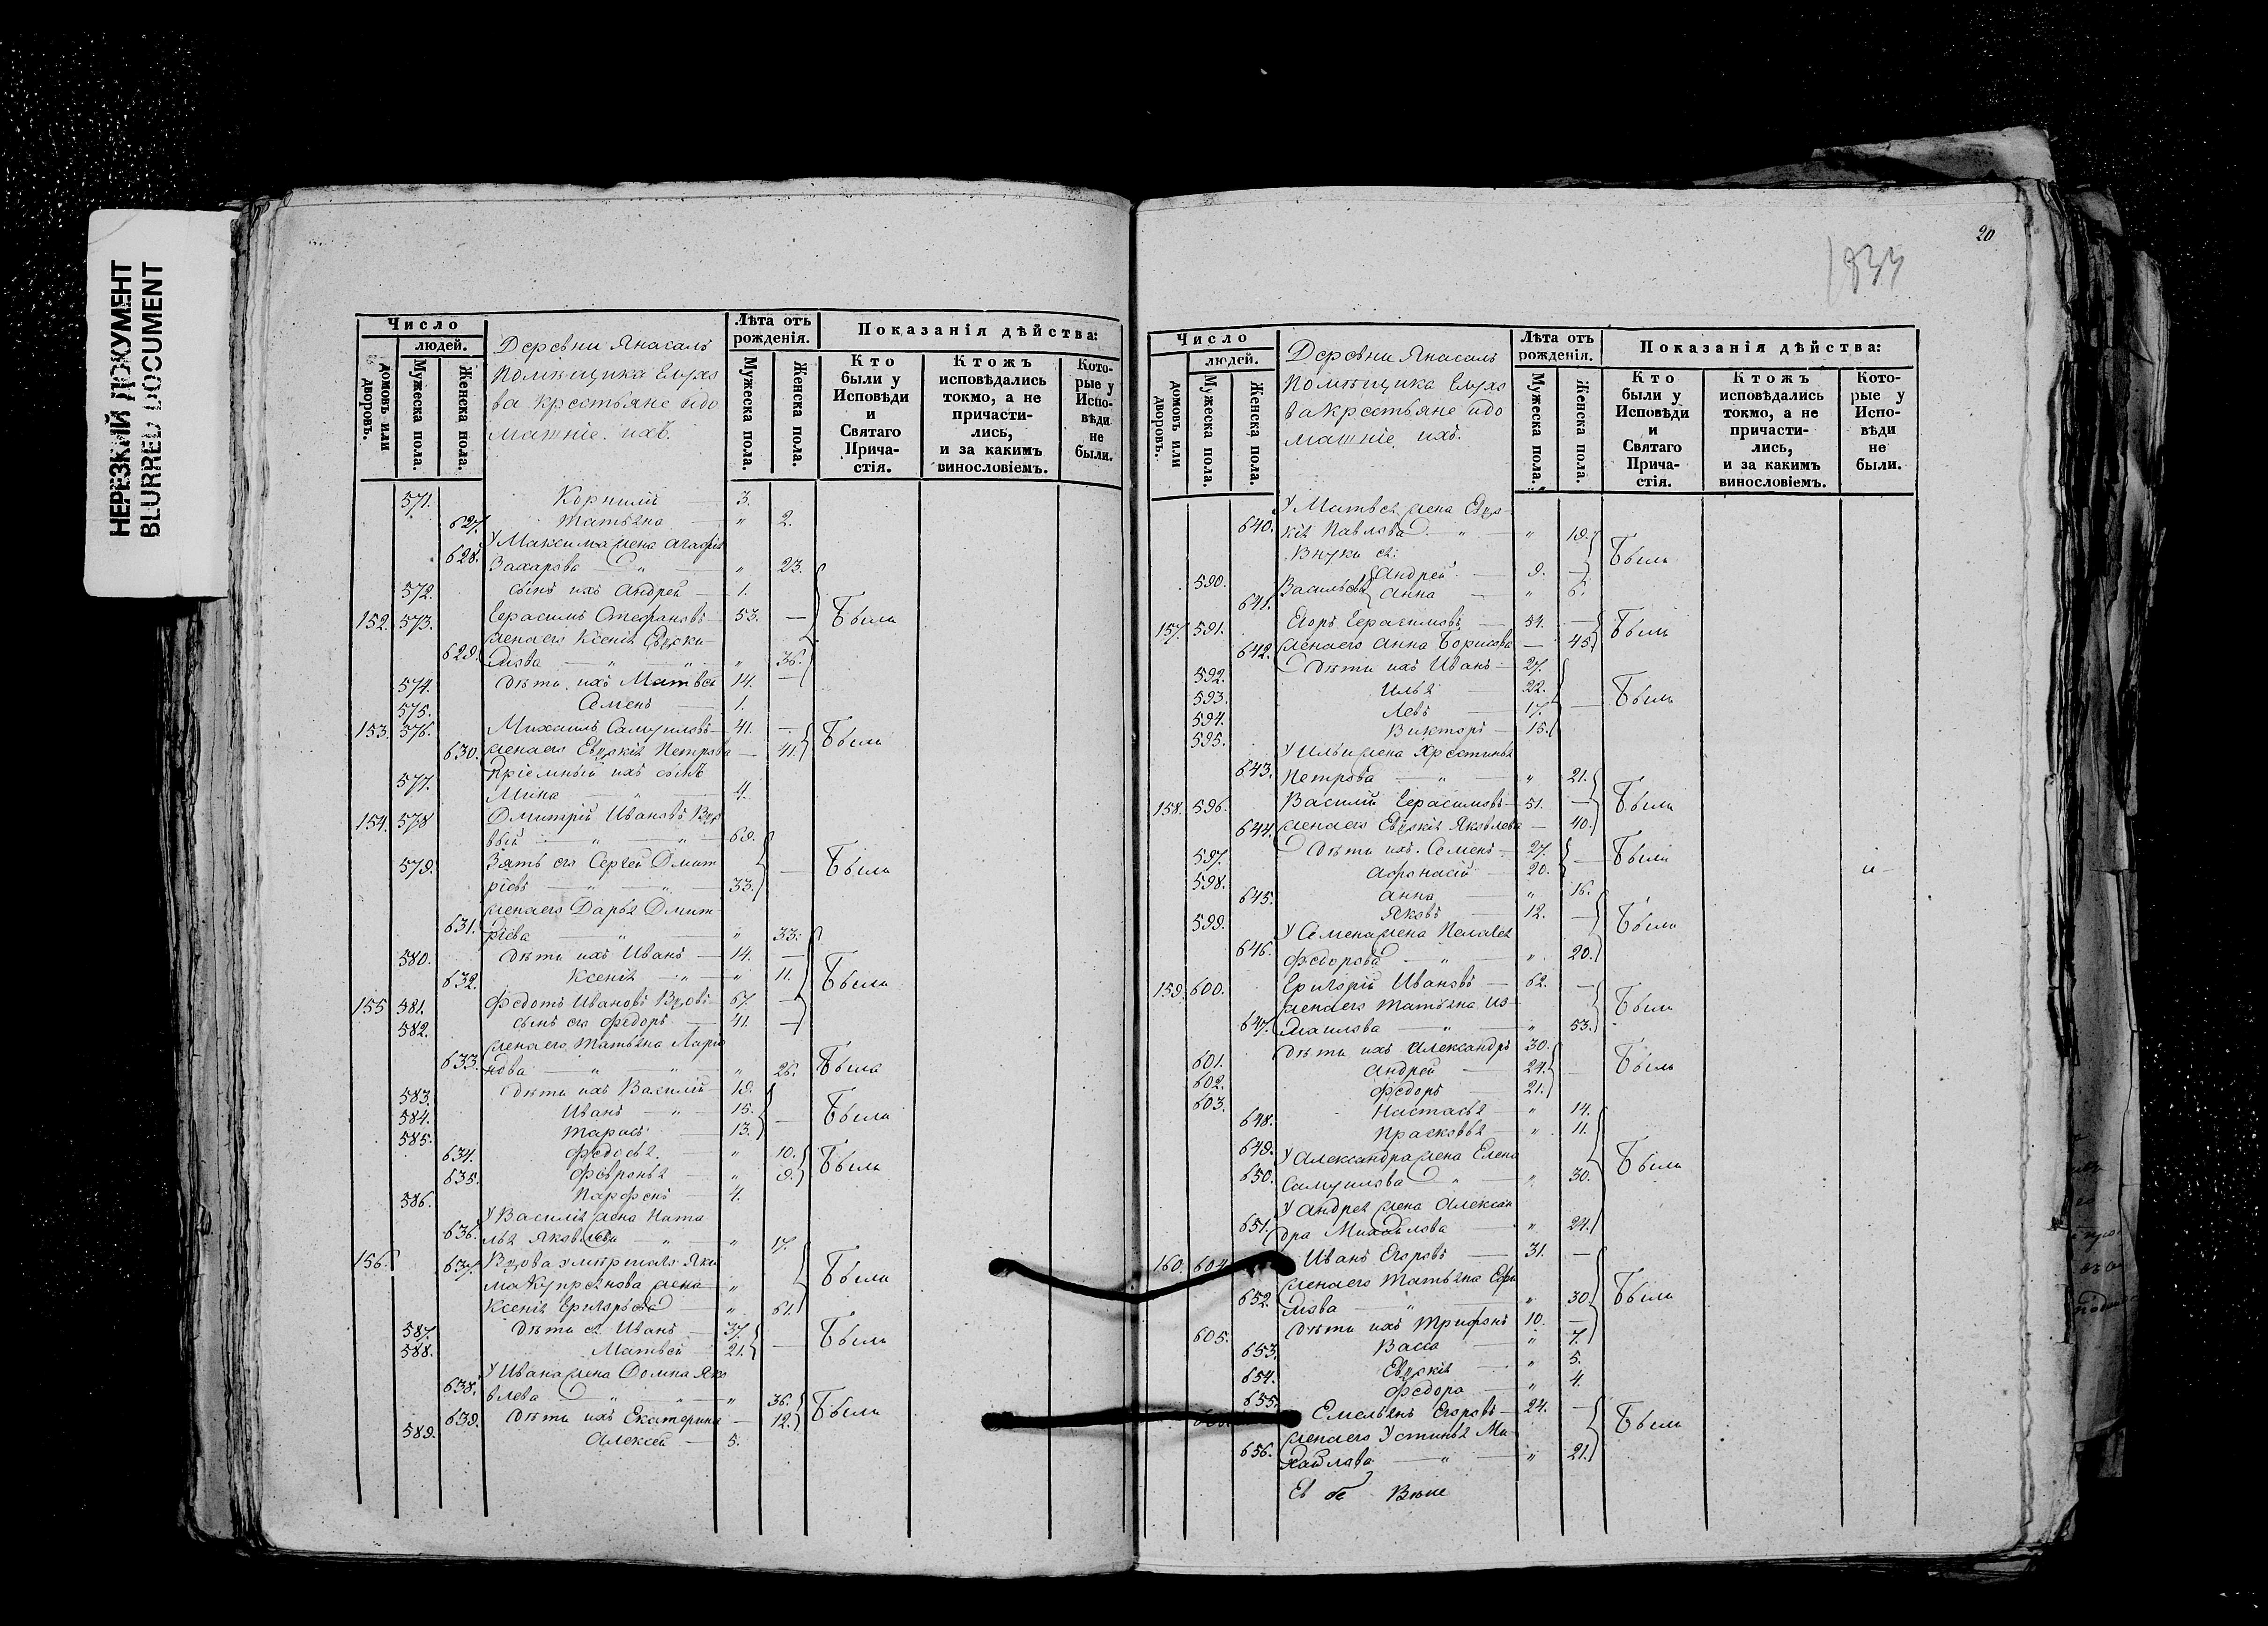 НЕРЕЗКИЙ ДОКУМЕНТ
BLURRED DOCUMENT
Число
людей.
домовъ или дворовъ.
Мужеска пола.
Женска пола.
Деревни
помѣщика
ва крестьяне и до
машніе ихъ.
Лѣта отъ рожденія.
Мужеска пола.
Женска пола.
Показанія дѣйства:
Кто были у Исповѣди и Святаго Прича-стія.
Ктожъ исповѣдались токмо, а не причасти-лись, и за какимъ винословіемъ.
Кото-рые у Испо-вѣди не были.
571. Корнилій 3.
627. Татьяна " 2.
У Максима жена Агафія
628. Захарова " " 23.
572. Сынъ ихъ Андрей 1.
152. 573. Герасимъ Стефановъ 53. — Были
жена его Ксенія Евдоки
629. мова " " " 36.
574. Дѣти ихъ Матвей 14. —
575. Семенъ 1.
153. 576. Михаилъ Самуиловъ 41. — Были
630. жена его Евдокія Петрова — 41.
Пріемный ихъ сынъ
577. Мина " 4.
154. 578 Дмитрій Ивановъ Вдо
вый " " 69.
579. Зять его Сергей Дмит — Были
ріевъ " " 33.
жена его Дарья Дмит
631. ріева " " 33.
580. Дѣти ихъ Иванъ 14. —
632. Ксенія " " 11. Были
155 581. Федотъ Ивановъ Вдовъ 67. —
582. сынъ его Федоръ 41. —
жена его Татьяна Ларио
633. нова " " " 26. Была
583. Дѣти ихъ Василій 19.
584. Иванъ " 15. — Были
585. Тарасъ 13.
634. Федосья " 10. Были
635. Февронья " 9.
586. Парфенъ 4.
У Василія жена Ната
636. лья Яковлева " " 17.
156. 637. Вдова умершаго Яки
ма Купреянова жена " Были
Ксенія Григорьева " 61.
587. Дѣти ея Иванъ 37. Были
588. Матвей 21. —
У Ивана жена Домна Яко
638. влева " " " 36. Были
639. Дѣти ихъ Екатерина — 12.
589. Алексей 5.
20
1833
Число
людей.
домовъ или дворовъ.
Мужеска пола.
Женска пола.
Деревни
помѣщика
ва крестьяне и до
машніе ихъ.
Лѣта отъ рожденія.
Мужеска пола.
Женска пола.
Показанія дѣйства:
Кто были у Исповѣди и Святаго Прича-стія.
Ктожъ исповѣдались токмо, а не причасти-лись, и за какимъ винословіемъ.
Кото-рые у Испо-вѣди не были.
У Матвея жена Евдо-
640. кія Павлова " " 19.
Внуки ея: Были
590. Васильевы Андрей 9. —
641. Анна " 6.
157. 591. Егоръ Герасимовъ 54. — Были
642. жена его Анна Борисова — 45.
592. Дѣти ихъ Иванъ 27.
593. Илья 22. Были
594. Левъ 17. —
595. Викторъ 15.
У Ильи жена Хрестинья
643. Петрова " " 21.
158. 596. Василій Герасимовъ 51. — Были
644. жена его Евдокія Яковлева — 40.
597. Дѣти ихъ Семенъ 27. — Были
598. Афонасій 20.
645. Анна " 16.
599. Яковъ 12. — Были
У Семена жена Пелагея
646. Федорова " " 20.
159. 600. Григорій Ивановъ 62. —
жена его Татьяна Из Были
647. маилова " " 53.
601. Дѣти ихъ Александръ 30.
602. Андрей 24. — Были
603. Федоръ 21.
648. Настасья " 14.
649. Прасковья " 11.
У Александра жена Елена Были
650. Самуилова " " 30.
У Андрея жена Алексан
651. дра Михайлова " 24.
160. 604 Иванъ Егоровъ 31. —
жена его Татьяна Ефи
652. мова " " 30. Были
605. Дѣти ихъ Трифонъ 10. —
653. Васса " 7.
654. Евдокія " 5.
655. Федора " 4.
Емельянъ Егоровъ 24. —
жена его Устинья Ми Были
656. хайлова " " 21.